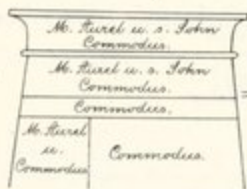 M. Aurel u. s. Sohn
Commodus.
M. Aurel u. s. Sohn
Commodus.
Commodus.
M. Aurel
u.
Commodus
Commodus.